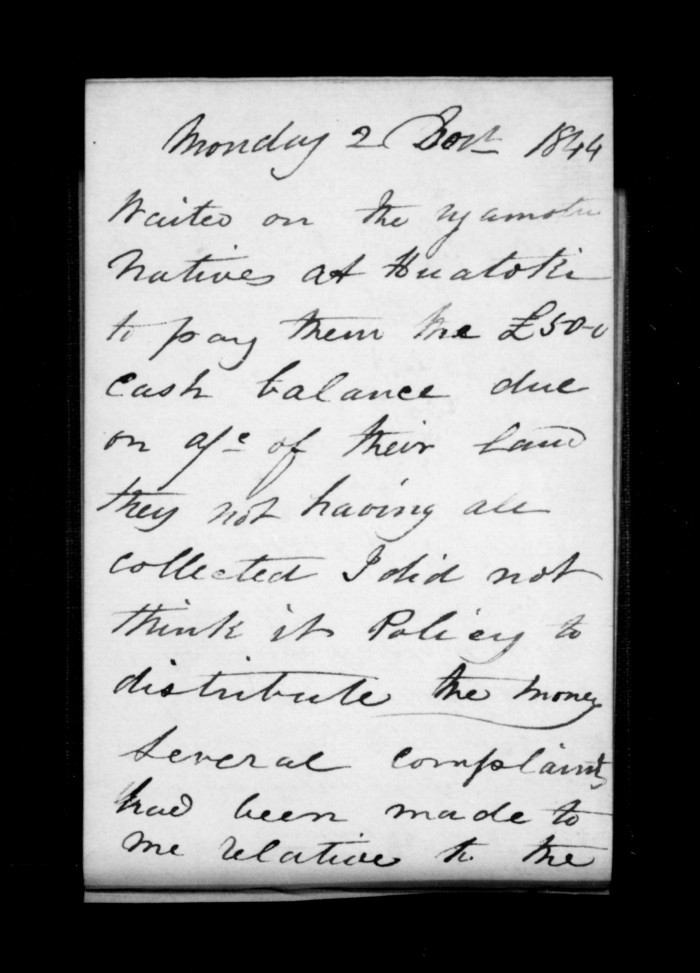 Monday 2 Decr 1844
Waited on the Nyamotu
Natives at Huatoki
to pay them the £50-0
Cash balance due
on a/c of their land
they not having all
collected I did not
think it Policy to
distribute the money
Several complaints
had been made to
me relative to the